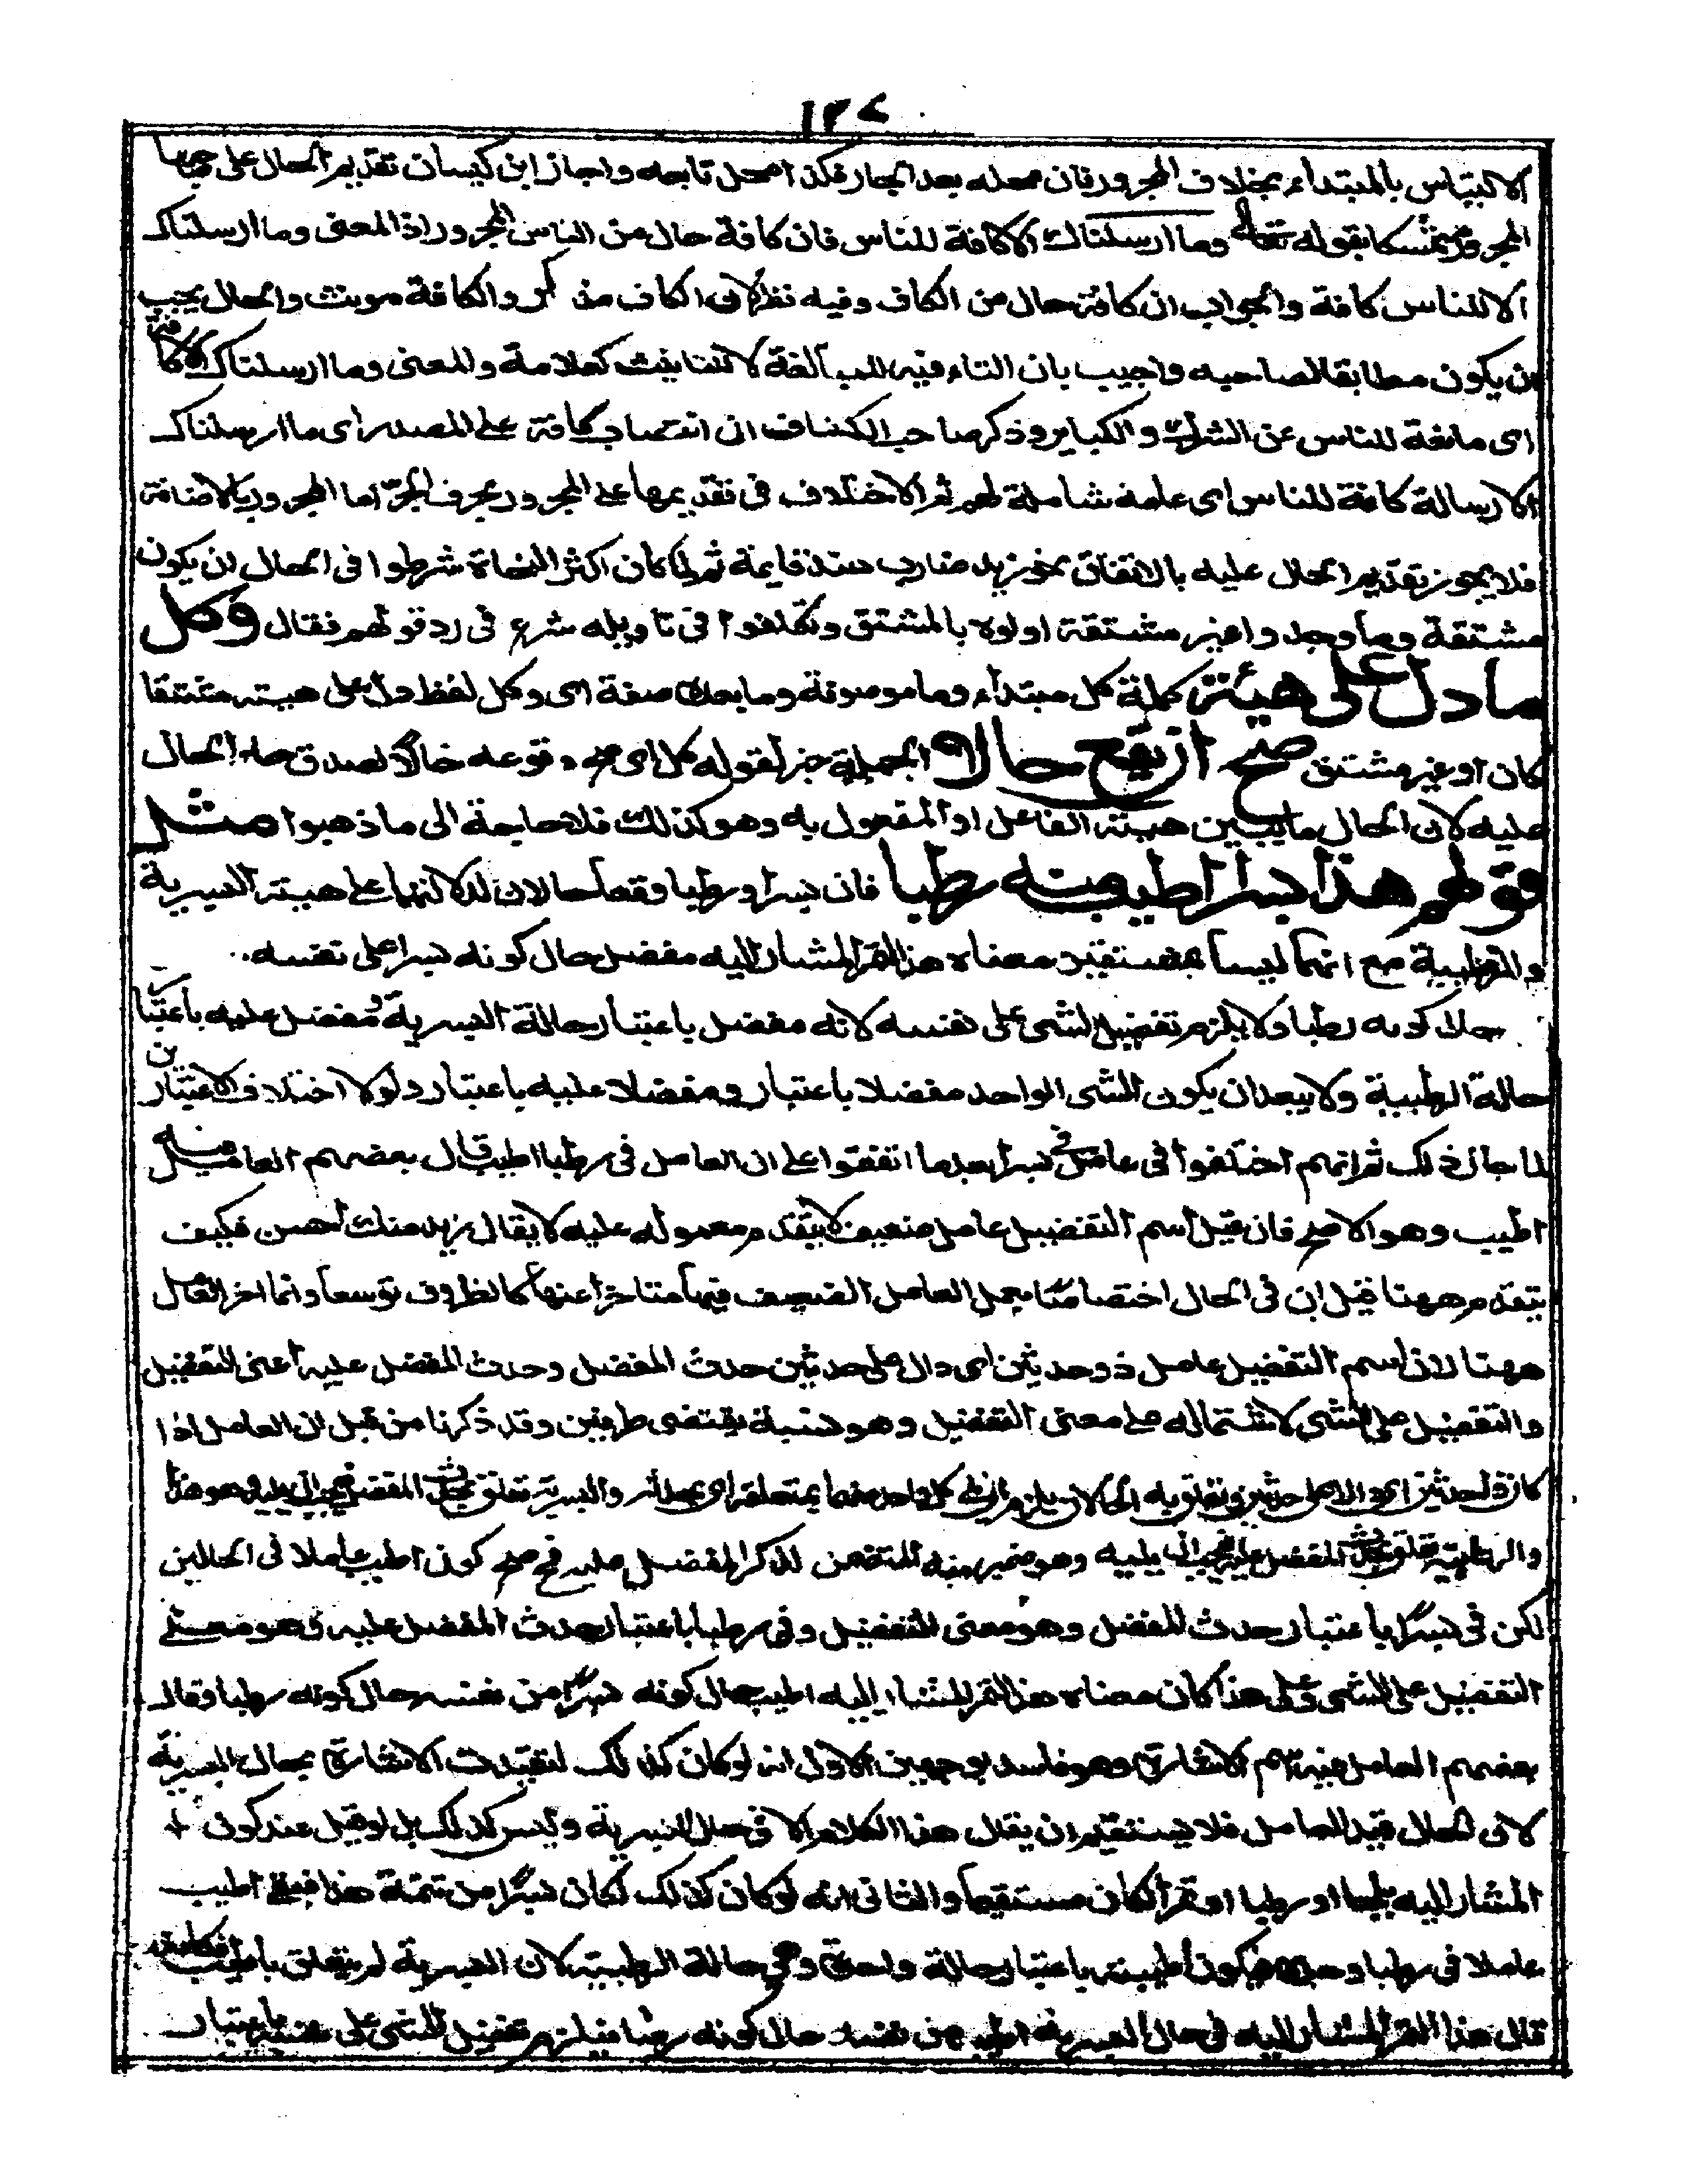 ١٣٧
الالتباس بالمبتداء بخلاف المجرور فان محله بعد الجار فكذا محل تابعه واجاز ابن كيسان تقديم الحال على
المجرور متمسكا بقوله تعالى وما ارسلناك الا كافة للناس فان كافة حال من الناس المجرور اذ المعنى وما ارسلناك
الا للناس كافة والجواب ان كافة حال من الكاف وفيه نظر لان الكاف مذكر والكافة مونث والحال يجب
ان يكون مطابقا لصاحبه واجيب بان التاء فيه للمبالغة لا للتانيث كعلامة والمعنى وما ارسلناك الا كافة
اى مانعة للناس عن الشرك والكباير وذكر صاحب الكشاف ان انتصاب كافة على المصدر اى ما ارسلناك
الا رسالة كافة للناس اى عامة شاملة لهم ثم الاختلاف فى تقديمها على المجرور بحرف الجر اما المجرور بالاضافة
فلا يجوز تقديم الحال عليه بالاتفاق نحو زيد ضارب هند قايمة ثم لما كان اكثر النحاة شرطوا فى الحال ان يكون
مشتقة وما وجدوا غير مشتقة اولوه بالمشتق وتكلفوا فى تاويله شرع فى رد قولهم فقال وكل
ما دل على هيئة كلمة كل مبتداء وما موصوفة وما بعده صفة اى وكل لفظ دل على هيئة مشتقا
كان او غير مشتق صح ان يقع حالا الجملة خبر لقوله كل اى صح وقوعه حالا لصدق حد الحال
عليه لان الحال ما يبين هيئة الفاعل او المفعول به وهو كذلك فلا حاجة الى ما ذهبوا مثل
قولهم هذا بسرا اطيب منه رطبا فان بسرا ورطبا وقعا حالان لدلالتهما على هيئة البسرية
والرطبية مع انهما ليسا بمشتقين معناه هذا التمر المشار اليه مفضل حال كونه بسرا على نفسه
حال كونه رطبا ولا يلزم تفضيل الشى على نفسه لانه مفضل باعتبار حالة البسرية ومفضل عليه باعتبار
حالة الرطبية ولا يبعد ان يكون الشى الواحد مفضلا باعتبار ومفضلا عليه باعتبار ولولا اختلاف الاعتبارين
لما جاز ذلك ثم انهم اختلفوا فى عامل فى بسرا بعد ما اتفقوا على ان العامل فى رطبا اطيب قال بعضهم العامل فيه
اطيب وهو الاصح فان قيل اسم التفضيل عامل ضعيف لا يتقدم معموله عليه لا يقال زيد منك احسن فكيف
يتقدم ههنا قيل ان فى الحال اختصاصا يعمل العامل الضعيف فيها متاخرا عنها كالظروف توسعا وانما اخر العامل
ههنا لان اسم التفضيل عامل ذو حدثين اى دال على حدثين حدث المفضل وحدث المفضل عليه اعنى التفضيل
والتفضيل على الشى لاشتماله على معنى التفضيل وهو نسبة يقتضى طرفين وقد ذكرنا من قبل ان العامل اذا
كان ذا حدثين اى دالا على حدثين وتعلق به الحالان يلزم ان يلى كل واحد منهما بمتعلقه اى بحاله والبسرية تعلق بحدث المفضل فيجب ان يليه وهو هذا
والرطبية تعلق بحدث المفضل عليه فيجب ان يليه وهو ضمير منه المتضمن لذكر المفضل عليه فح صح كون اطيب عاملا فى الحالين
لكن فى بسرا باعتبار حدث المفضل وهو معنى التفضيل وفى رطبا باعتبار حدث المفضل عليه وهو معنى
التفضيل على الشى وعلى هذا كان معناه هذا التمر المشار اليه اطيب حال كونه بسرا من نفسه حال كونه رطبا وقال
بعضهم العامل فيه اسم الاشارة وهو فاسد لوجهين الاول انه لو كان كذلك لتقيدت الاشارة بحال البسرية
لان الحال قيد العامل فلا يستقيم ان يقال هذا الكلام الا فى حال البسرية وليس كذلك بل لو قيل عند كون
المشار اليه بلحا او رطبا او تمرا لكان مستقيما والثانى انه لو كان كذلك لكان بسرا من تتمة هذا فبقى اطيب
عاملا فى رطبا وحده فيكون اطيبيته باعتبار حالة واحدة وهى حالة الرطبية لان البسرية لم يتعلق باطيب فكانه
قال هذا التمر المشار اليه فى حال البسرية اطيب من نفسه حال كونه رطبا فيلزم تفضيل الشى على نفسه باعتبار